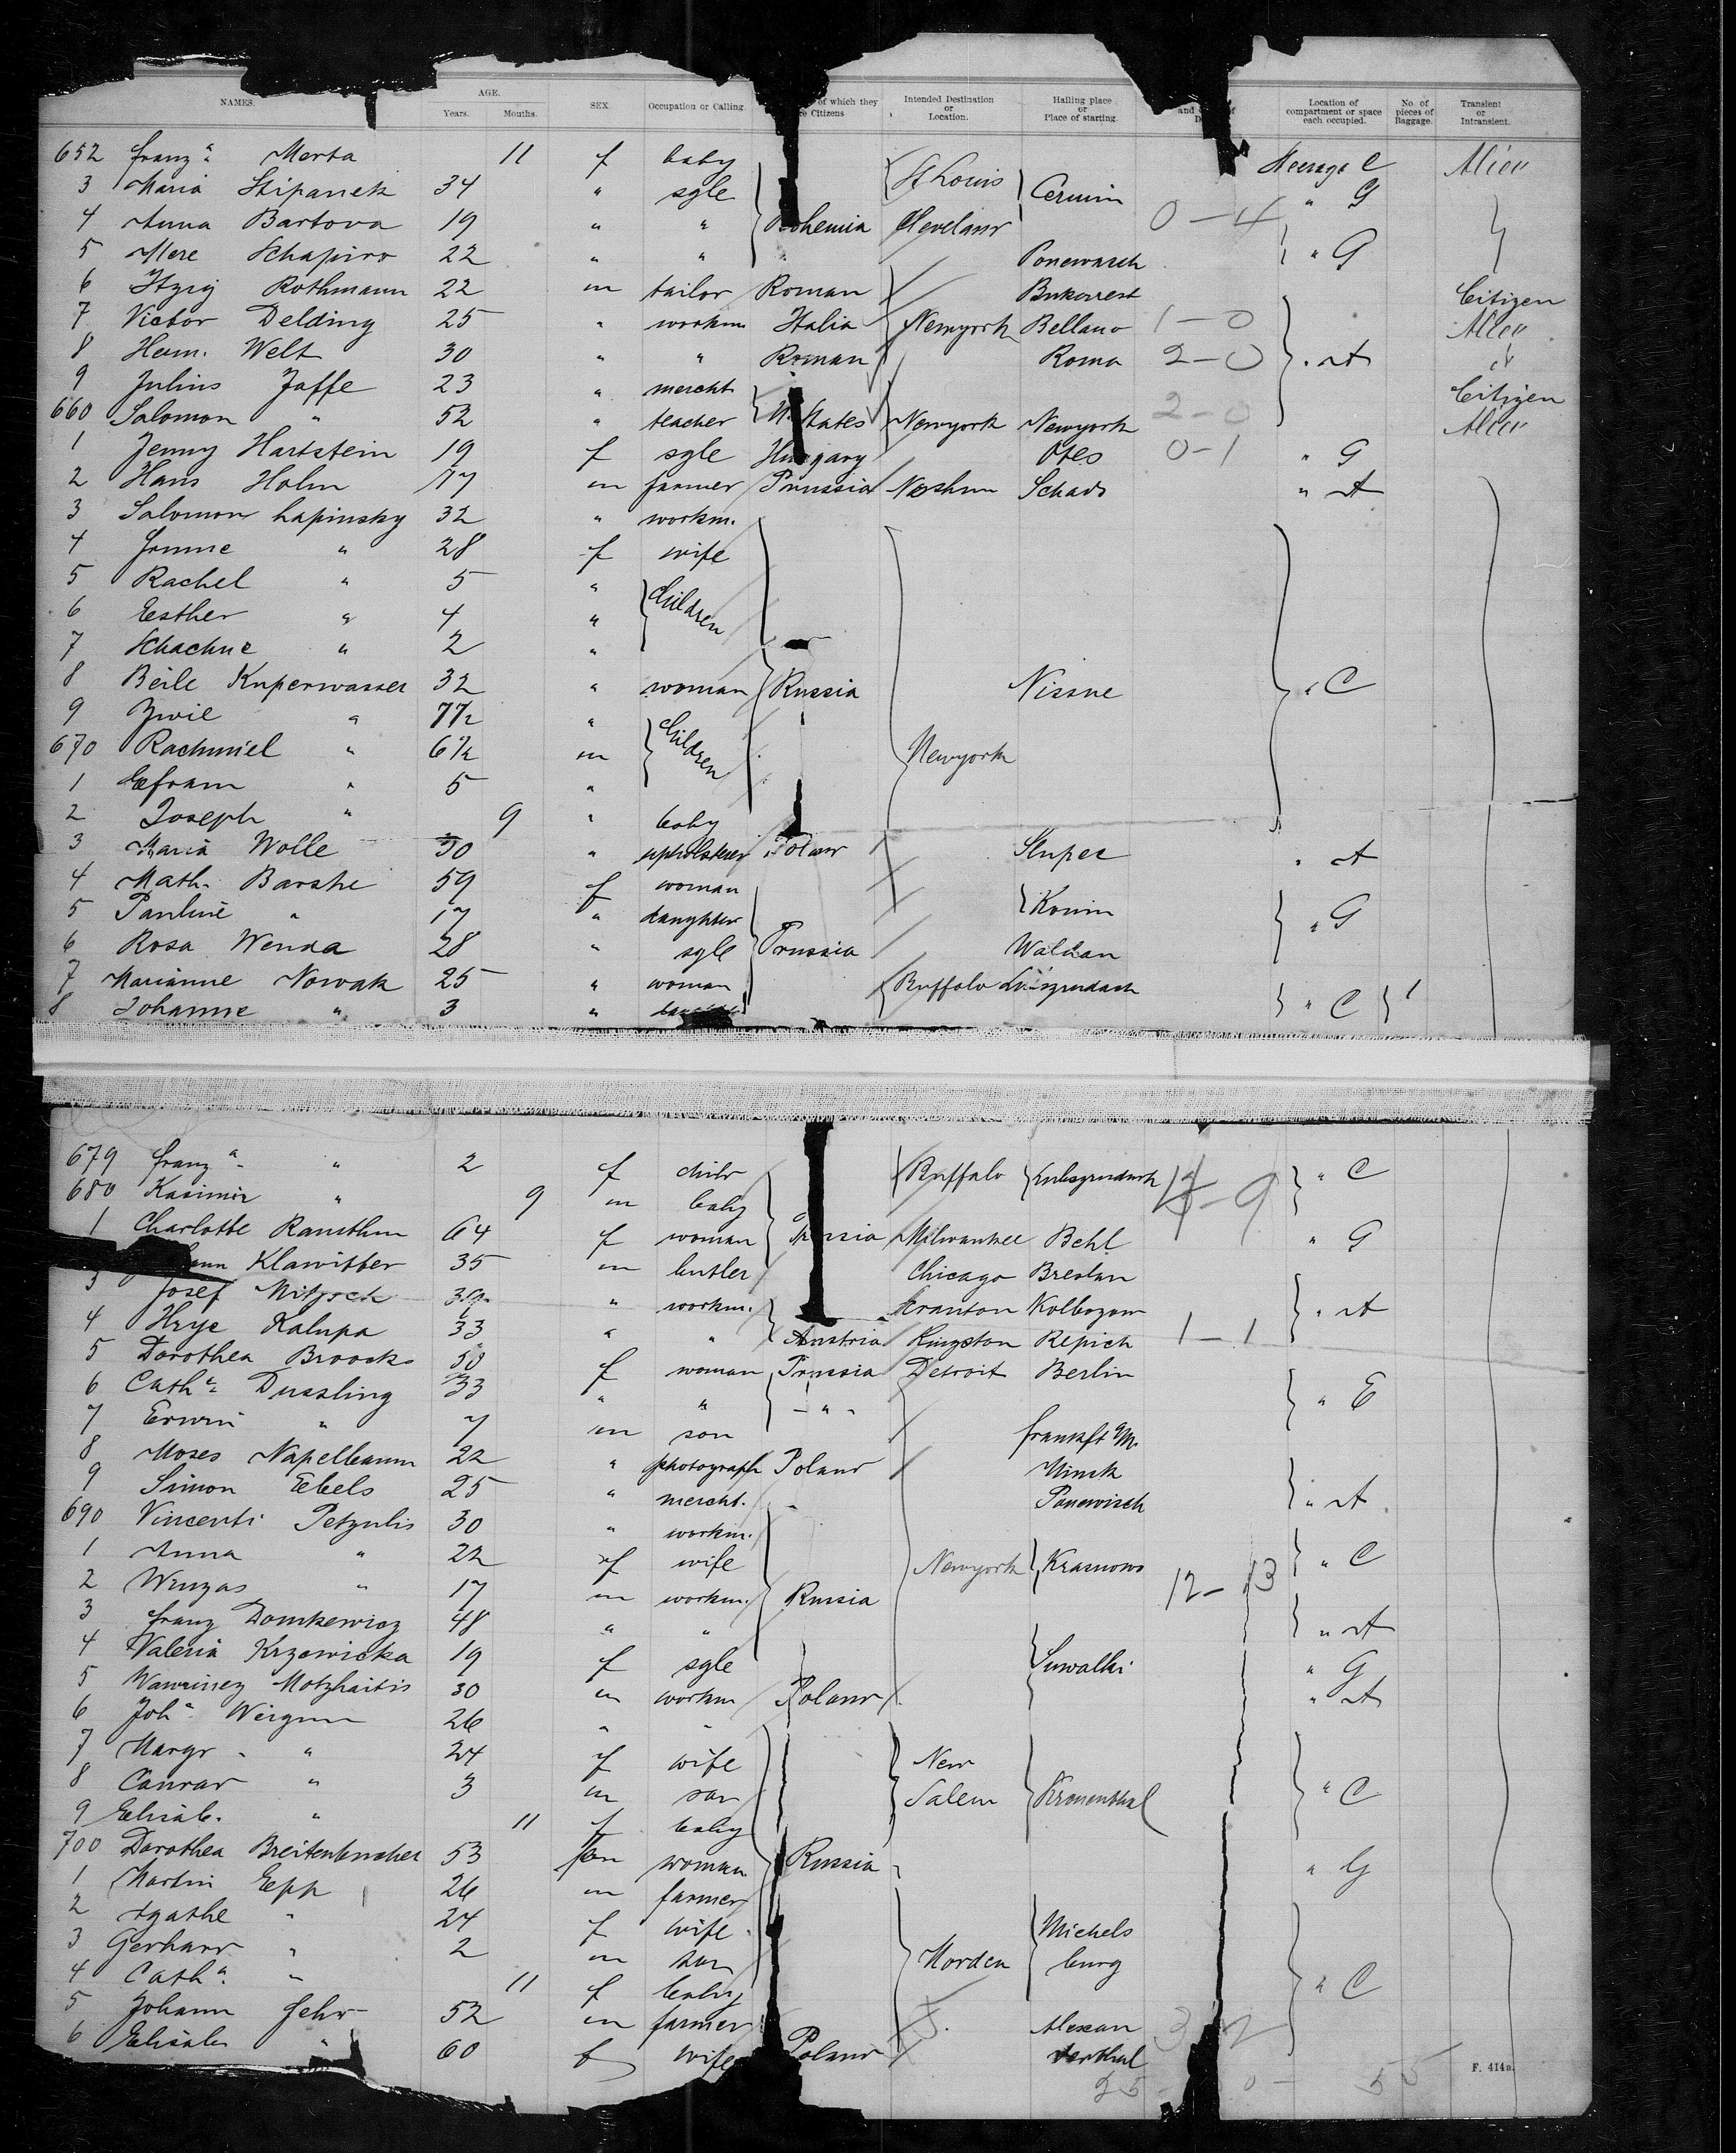 NAMES. AGE. Years. Months. SEX. Occupation or Calling. of which they Citizens Intended Destination or Location. Hailing place or Place of starting. Location of compartment or space each occupied. No. of pieces of Baggage. Transient or Intransient.
652 Franz a Merta 11 f baby St Louis Steerage C Alien
3 Maria Stipanek 34 " sgle " G
4 Anna Bartova 19 " " Bohemia Cleveland 0-4
5 Mere Schapiro 22 " " " Ponewasch " G
6 Itzig Rothmann 22 m tailor Roman Bukarest Citizen
7 Victor Delding 25 " workm Italia Newyork Bellano 1-0 Alien
8 Herm. Welt 30 " " Roman Roma 2-0 " A "
9 Julius Jaffe 23 " mercht Citizen
660 Salomon " 52 " teacher U. States Newyork Newyork 2-0 Alien
1 Jenny Hartstein 19 f sgle Hungary 0-1 " G
2 Hans Holm 17 m farmer Prussia Schads " A
3 Salomon Lapinsky 32 " workm.
4 " 28 f wife
5 Rachel " 5 " Children
6 Esther " 4 "
7 Schachne " 2 "
8 Beile Kuperwasser 32 " woman Russia Nissne " C
9 Zwie " 7½ " Children
670 Rachmiel " 6½ m Newyork
1 Efram " 5 "
2 Joseph " 9 " baby
3 Maria Wolle 30 " upholsterer Poland Slupec " A
4 Math. Barshe 59 f woman Konin
5 Pauline " 17 " daughter " G
6 Rosa Wenda 28 " sgle Prussia Waldan
7 Marianne Nowak 25 " woman Buffalo
8 Johanne " 3 " " C 1
679 Franz a " 2 f child Buffalo " C
680 Kasimir " 9 m baby
1 Charlotte Ramthun 64 f woman Milwaukee Behl " G
Klawitter 35 m butler Chicago Breslau
3 Josef Mitzsch " workm. Scranton Kolbozow " A
4 Hryc Kalupa 33 " " Austria Kingston Repich 1-1
5 Dorothea Broocks 50 f woman Prussia Detroit Berlin
6 Cath a Dussling 33 " " - " - " E
7 Erwin " 7 m son Frankft a/M.
8 Moses Napelbaum 22 " photograph Poland Minsk
9 Simon Ebels 25 " mercht. " Ponewisch " A
690 Vincenti Petzulis 30 " workm.
1 Anna " 22 f wife Newyork Krasnowo " C
2 Winzas " 17 m workm. Russia 12-13
3 Franz Domkewicz 48 " " " A
4 Valeria Krzewicka 19 f sgle Suwalki " G
5 Wawrinez Motzhaitis 30 m workm Poland " A
6 Joh a 26 " "
7 Margr. " 24 f wife New
8 Conrad " 3 m son Salem Kronenthal " C
9 Elisab. " 11 f baby
700 Dorothea Breitenbucher 53 woman Russia " G
1 Martin Epp 26 m farmer
2 Agathe " 24 f wife Michels
3 Gerhard " 2 m son Morden burg
4 Cath a " 11 f baby " C
5 Johann Fehr 52 m farmer Alexan
6 Elisab " 60 f wife Poland derthal
25 0 - 55
F. 414a.